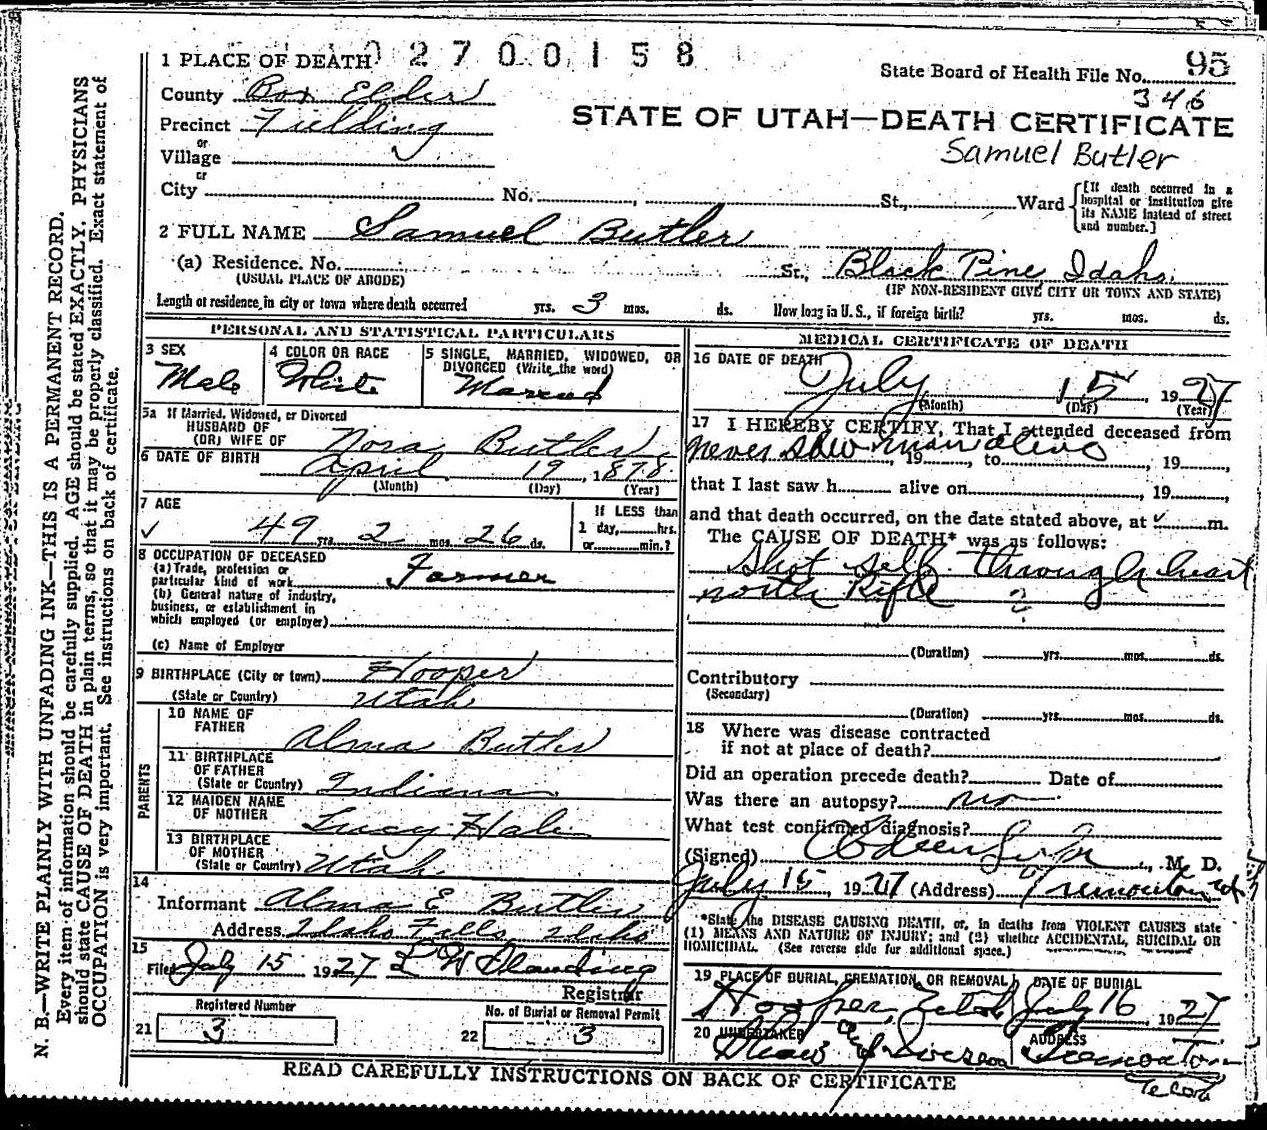 1 PLACE OF DEATH 02700158
State Board of Health File No. 95
346
County Box Elder
STATE OF UTAH—DEATH CERTIFICATE
Precinct Fielding
Samuel Butler
or
Village
or
City No. , St., Ward
[If death occurred in a hospital or institution give its NAME instead of street and number.]
2 FULL NAME Samuel Butler
(a) Residence. No. St., Black Pine, Idaho.
(USUAL PLACE OF ABODE) (IF NON-RESIDENT GIVE CITY OR TOWN AND STATE)
Length of residence in city or town where death occurred yrs. 3 mos. ds. How long in U. S., if foreign birth? yrs. mos. ds.
PERSONAL AND STATISTICAL PARTICULARS
3 SEX Male
4 COLOR OR RACE White
5 SINGLE, MARRIED, WIDOWED, OR DIVORCED (Write the word) Married
5a If Married, Widowed, or Divorced
HUSBAND OF
(OR) WIFE OF Nora Butler
6 DATE OF BIRTH April 19, 1878.
(Month) (Day) (Year)
7 AGE
49 yrs. 2 mos. 26 ds.
If LESS than
1 day, hrs.
or min.?
8 OCCUPATION OF DECEASED
(a) Trade, profession or
particular kind of work Farmer
(b) General nature of industry,
business, or establishment in
which employed (or employer)
(c) Name of Employer
9 BIRTHPLACE (City or town) Hooper
(State or Country) Utah
PARENTS
10 NAME OF
FATHER Alma Butler
11 BIRTHPLACE
OF FATHER
(State or Country) Indiana
12 MAIDEN NAME
OF MOTHER Lucy Hale
13 BIRTHPLACE
OF MOTHER
(State or Country) Utah.
14
Informant Alma E Butler
Address Idaho Falls Idaho
15
Filed July 15 1927 L W
Registrar
Registered Number
21 3
No. of Burial or Removal Permit
22 3
MEDICAL CERTIFICATE OF DEATH
16 DATE OF DEATH
July 15, 1927
(Month) (Day) (Year)
17 I HEREBY CERTIFY, That I attended deceased from
never saw man alive , 19 , to , 19 ,
that I last saw h alive on , 19 ,
and that death occurred, on the date stated above, at m.
The CAUSE OF DEATH* was as follows:
Shot self through heart
with Rifle ?
(Duration) yrs. mos. ds.
Contributory
(Secondary)
(Duration) yrs. mos. ds.
18 Where was disease contracted
if not at place of death?
Did an operation precede death? Date of
Was there an autopsy? no
What test confirmed diagnosis?
(Signed) , M. D.
July 15, 1927 (Address) Tremonton Ut
*State the DISEASE CAUSING DEATH, or, in deaths from VIOLENT CAUSES state
(1) MEANS AND NATURE OF INJURY; and (2) whether ACCIDENTAL, SUICIDAL OR
HOMICIDAL. (See reverse side for additional space.)
19 PLACE OF BURIAL, CREMATION, OR REMOVAL
Hooper, Utah
DATE OF BURIAL
July 16, 1927
20 UNDERTAKER
Shaw & Iverson
ADDRESS
Tremonton
READ CAREFULLY INSTRUCTIONS ON BACK OF CERTIFICATE
N. B.—WRITE PLAINLY WITH UNFADING INK—THIS IS A PERMANENT RECORD.
Every item of information should be carefully supplied. AGE should be stated EXACTLY. PHYSICIANS
should state CAUSE OF DEATH in plain terms, so that it may be properly classified. Exact statement of
OCCUPATION is very important. See instructions on back of certificate.